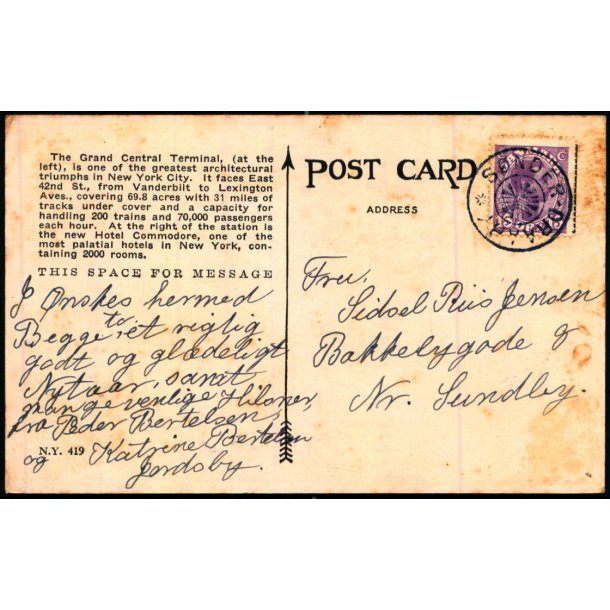 The Grand Central Terminal, (at the
left), is one of the greatest architectural
triumphs in New York City. It faces East
42nd St., from Vanderbilt to Lexington
Aves., covering 69.8 acres with 31 miles of
tracks under cover and a capacity for
handling 200 trains and 70,000 passengers
each hour. At the right of the station is
the new Hotel Commodore, one of the
most palatial hotels in New York, con-
taining 2000 rooms.
THIS SPACE FOR MESSAGE
J Ønskes hermed
Begge to, et rigtig
godt og glædeligt
Nytaar, samt
mange venlige Hilsner,
fra Peder Bertelsen,
og Katrine Bertelsen
N.Y. 419
POST CARD
ADDRESS
SØNDER DRAABY
Fru.
Sidsel Riis Jensen
Bakkelygade 8
Nr. Sundby.